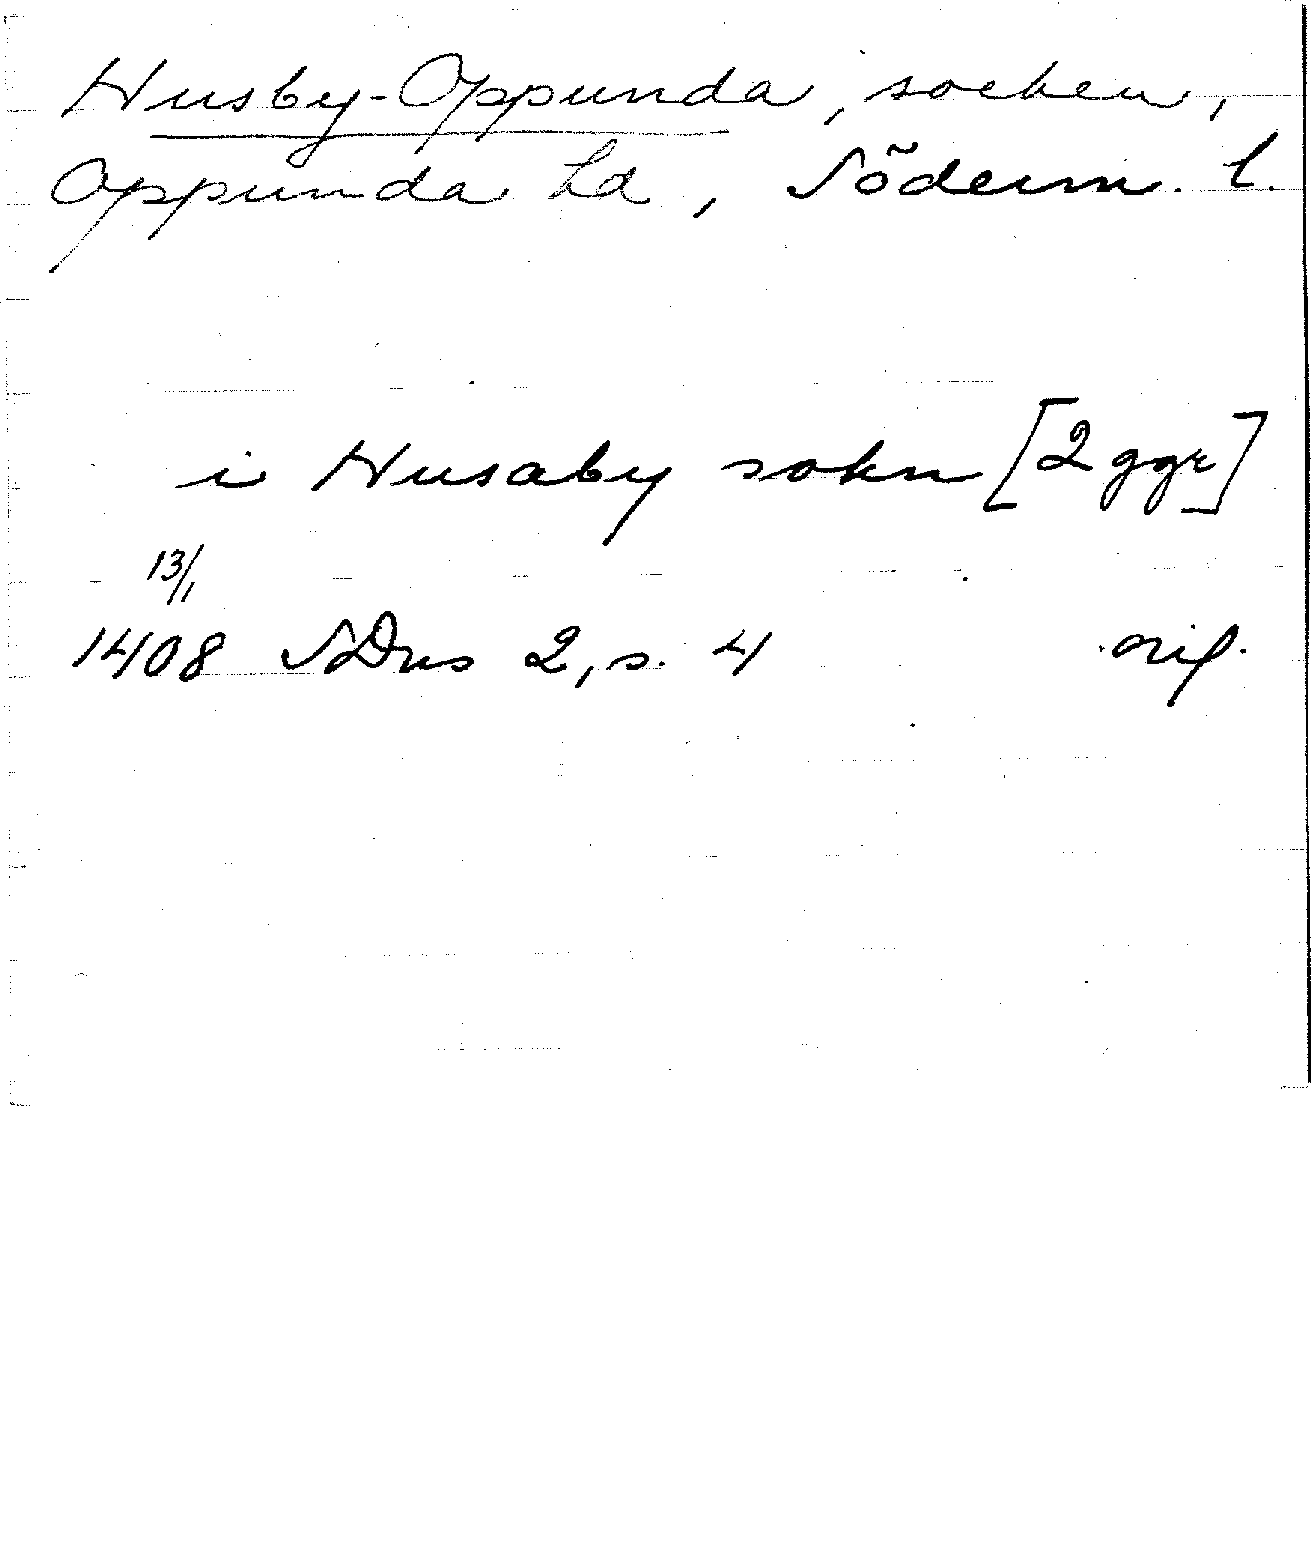 Husby-Oppunda, socken,
Oppunda hd, Söderm. l.
i Husaby sokn [2 ggr]
13/1
1408 SDns 2, s. 4 orig.